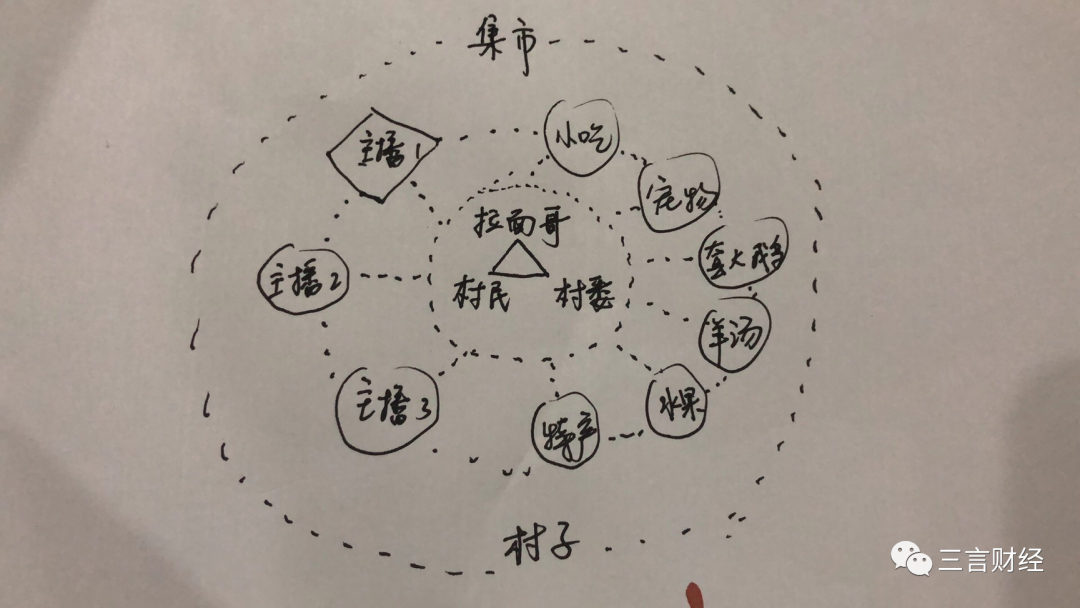 集市
主播1
小吃
宠物
拉面哥
套大鹅
主播2
村民
村委
羊汤
主播3
水果
特产
村子
三言财经